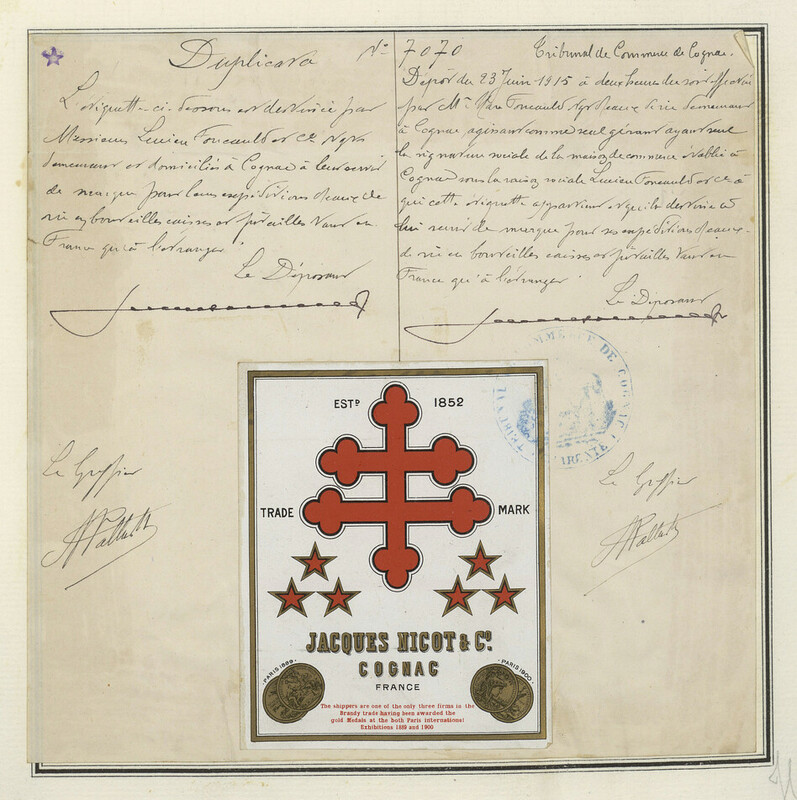 Duplicata
L'étiquette ci-dessous est destinée par
Messieurs Lucien Foucauld et Cie Negts
demeurant et domiciliés à Cognac à leur servir
de marque pour leurs expéditions d'eaux de
vie en bouteilles caisses et futailles tant en
France qu'à l'étranger
Le Déposant
No 7070 Tribunal de Commerce de Cognac.
Dépôt du 23 Juin 1915 à deux heures du soir
par Mr Foucauld demeurant
à Cognac agissant comme seul gérant ayant seul
la signature sociale de la maison de commerce établie à
Cognac sous la raison sociale Lucien Foucauld et Cie à
qui cette étiquette appartient et qu'ils destine à
lui servir de marque pour ses expéditions d'eaux-
de vie en bouteilles caisses et futailles tant en
France qu'à l'étranger
Le Déposant
TRIBUNAL DE COMMERCE DE COGNAC
CHARENTE
Le Greffier
Le Greffier
ESTD 1852
TRADE MARK
JACQUES NICOT & Co.
COGNAC
FRANCE
PARIS 1889
PARIS 1900
The shippers are one of the only three firms in the
Brandy trade having been awarded the
gold Medals at the both Paris international
Exhibitions 1889 and 1900